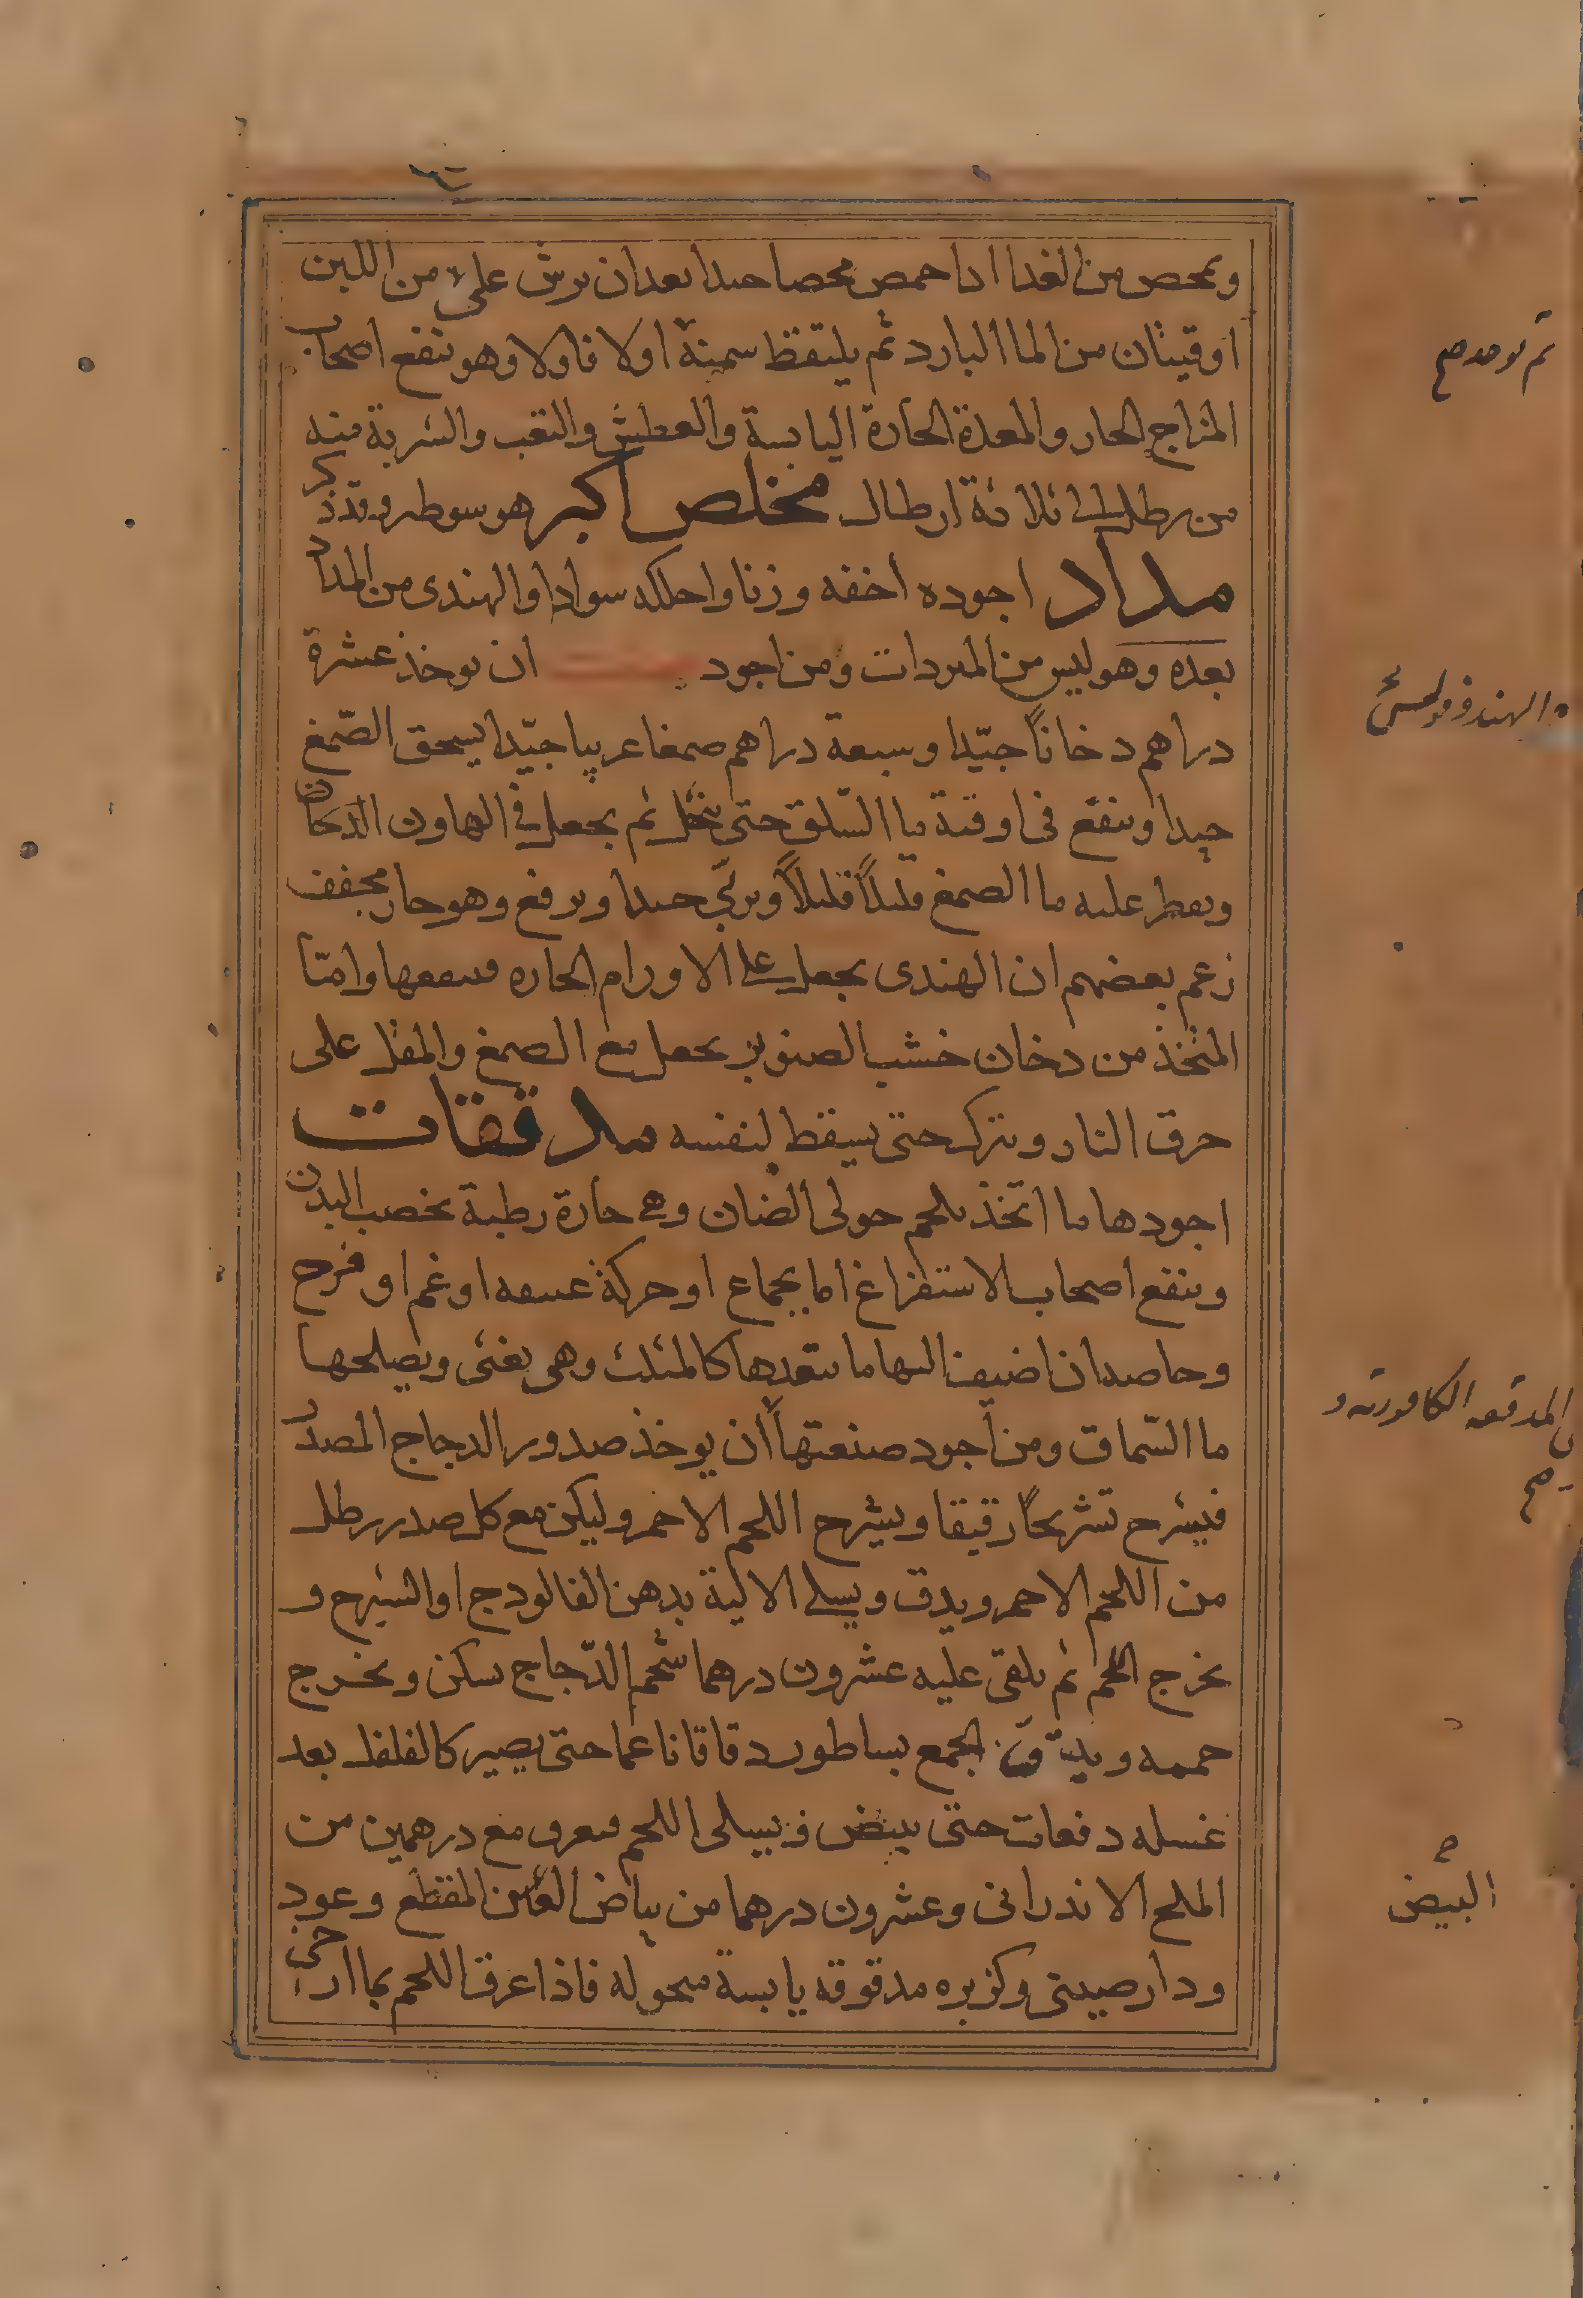 ويمحص من الغدا اذا حمص محصا جيدا بعد ان يرش على من اللبن
اوقيتان من الما البارد ثم يلتقط سمينة اولا فاولا وهو ينفع اصحاب
المزاج الحار والمعدة الحارة اليابسة والعطش والتعب والشربة منه
من رطل الى ثلاثة ارطال مخلص اكبر هو سوطير وقد ذكر
مداد اجوده اخفه وزنا واحلكه سوادا والهندى من المداد
بعده وهو ليس من المبردات ومن اجود ان يوخذ عشرة
دراهم دخاناً جيّدا وسبعة دراهم صمغا عربيا جيّدا يسحق الصّمغ
جيدا وينقع فى اوقية ما السّلق حتى ينحل ثم يجعل في الهاون الدخان
ويقطر عليه ما الصمغ قليلاً قليلاً ويربي جيدا ويرفع وهو حار مجفف
زعم بعضهم ان الهندى يجعل على الاورام الحاره فينفعها وامّا
المتخذ من دخان خشب الصنوبر يجعل مع الصمغ والمقل على
حرق النار ويترك حتى يسقط لنفسه مدققات
اجودها ما اتخذ بلحم حولى الضان وهي حارة رطبة تخصب البدن
وينفع اصحاب الاستفراغ اما بجماع او حركة عنيفه او غم او فرح
وحاصدان اضيف اليها ما ينعدها كالمثلث وهى يغثى ويصلحها
ما السّماق ومن اجود صنعتها أن يوخذ صدور الدجاج المصدر
فيشرح تشريحاً رقيقا ويشرح اللحم الاحمر وليكن مع كل صدر رطل
من اللحم الاحمر ويدق ويسلى الالية بدهن الفالودج او الشيرج و
يخرج اللحم ثم يلقى عليه عشرون درهما شحم الدّجاج يسكن ويخرج
حممه ويدّق الجمع بساطور دقاقا ناعما حتى يصير كالفلفل بعد
غسله دفعات حتى يبيض ويسلى اللحم فيعرق مع درهمين من
الملح الاندرانى وعشرون درهما من بياض المقطع وعود
ودارصينى وكزبره مدقوقه يابسة منحوله فاذا عرق اللحم بما ارخى
ثم يوخد صح
الهند
المدققه الكافوريه و
صح
البيض